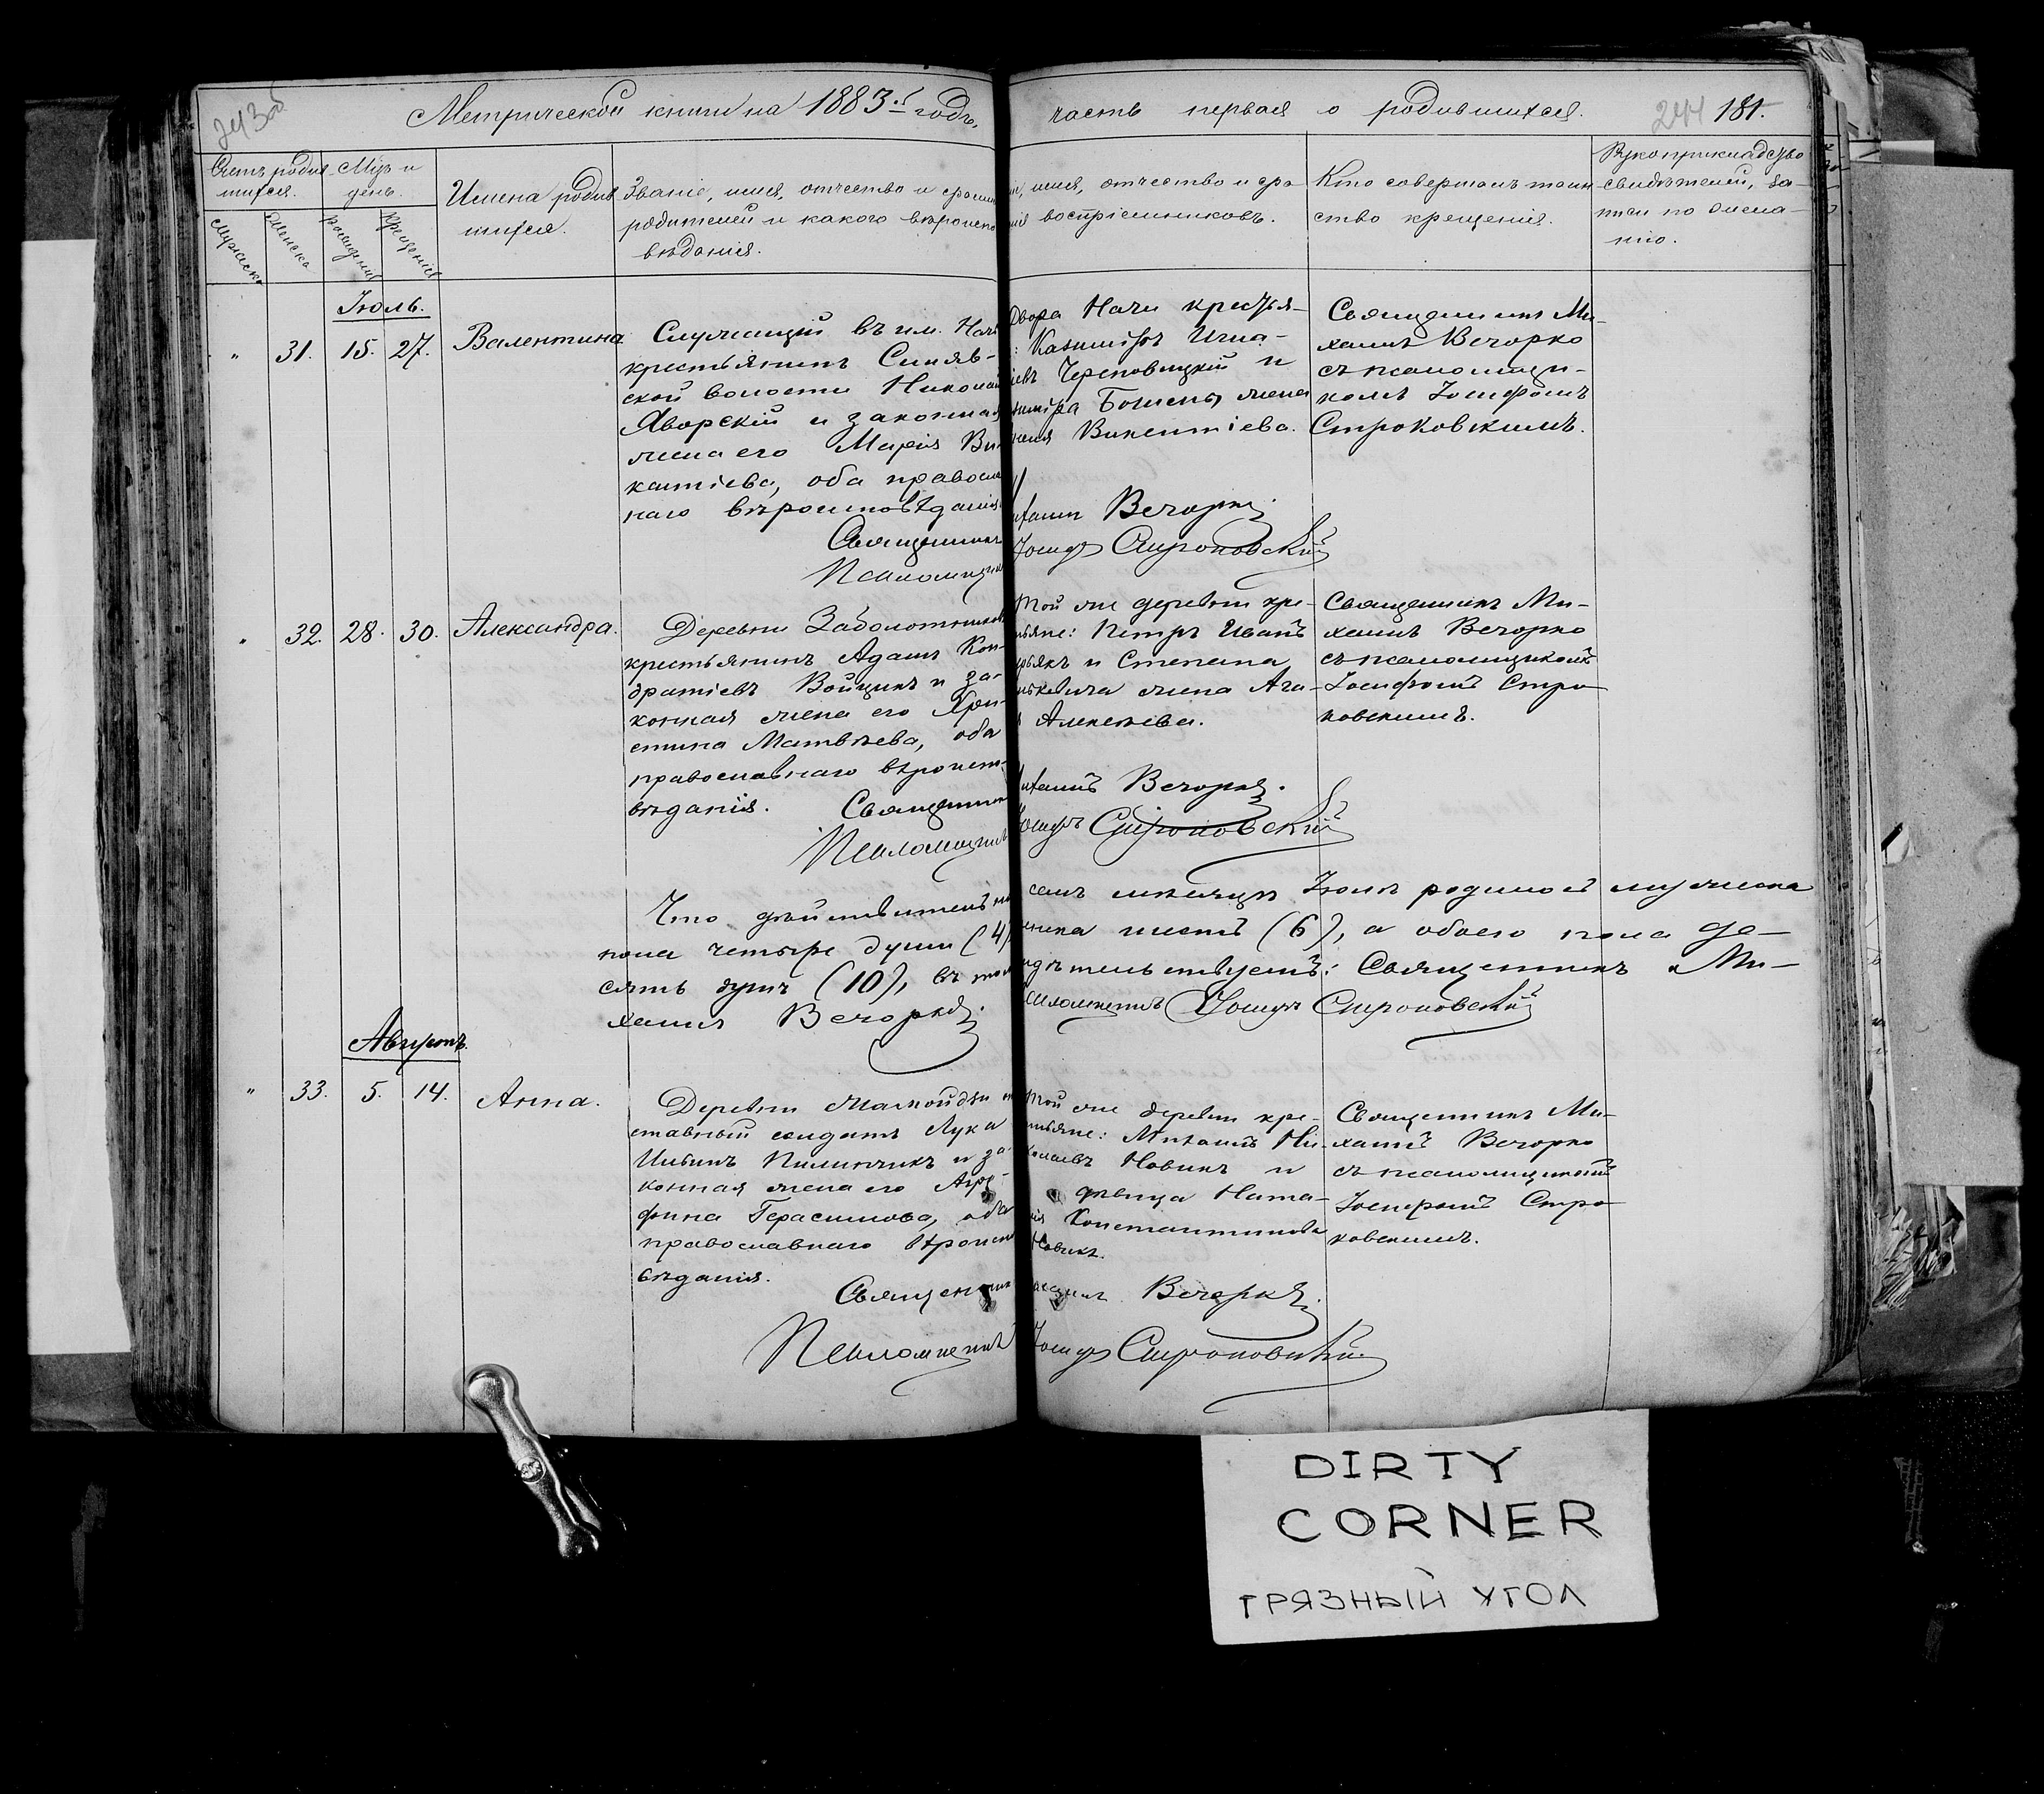 243об
Метрической книги на 1883й годъ,
часть первая о родившихся.
244 181.
Счетъ родив-
шихся.
Мѣр и
день.
Мужеска
Женска
рожденія
крещенія
Имена родив
шихся.
Званіе, имя, отчество и фамил
родителей и какого вѣроиспо
вѣданія.
имя, отчество и фа-
воспріемниковъ.
Кто совершалъ таин
ство крещенія.
Рукоприкладство
свидѣтелей, за-
писи по жела-
нію.
Іюль.
" 31. 15. 27. Валентина
Служащій въ им. Нач
крестьянинъ Синяв-
ской волости Николай
Яворскій и законная
жена его Марія Ви-
кентіева, оба правосл
наго вѣроисповѣданія
Священникъ
Псаломщик
Двора Начи крестья-
: Казимиръ Игна-
Череповицкій и
жена
Викентіева.
Вечорко.
Іосифъ Строковскій
Священникъ Ми-
хаилъ Вечорко
съ псаломщи-
комъ Іосифомъ
Строковскимъ.
" 32. 28. 30. Александра.
Деревни
крестьянинъ Адамъ Кон-
дратіевъ Войцикъ и за-
конная жена его Хри-
стина Матвѣева, оба
православнаго вѣроиспо-
вѣданія. Священник
Псаломщикъ
Той же деревни кре-
стьяне: Петръ Иванъ
и Степана
жена Ага-
Алексѣева.
Вечорко.
Іосифъ Строковскій
Священникъ Ми-
хаилъ Вечорко
съ псаломщикомъ
Іосифомъ Стро-
ковскимъ.
Что дѣйствительно
семъ мѣсяцѣ Іюлѣ родилось мужеска
пола четыре души (4)
женска шесть (6), а обоего пола де-
сять душъ (10), въ томъ
свидѣтельствуемъ: Священникъ Ми-
хаилъ Вечорко.
Псаломщикъ Іосифъ Строковскій
Августъ.
" 33. 5. 14. Анна.
Деревни от
ставный солдатъ Лука
Ильинъ Пилипчикъ и за-
конная жена его Агре-
фина Герасимова, оба
православнаго вѣроиспо
вѣданія.
Священникъ
Псаломщикъ
Той же деревни кре-
стьяне: Михаилъ Ни-
колаевъ Новикъ и
дѣвица Ната-
лія Константинова
Новикъ.
Михаилъ Вечорко.
Іосифъ Строковскій
Священникъ Ми-
хаилъ Вечорко
съ псаломщикомъ
Іосифомъ Стро-
ковскимъ.
DIRTY
CORNER
ГРЯЗНЫЙ УГОЛ